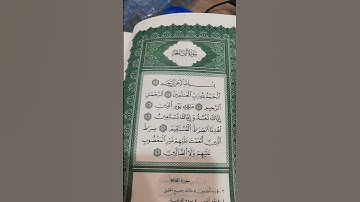 سورة الفاتحة
بسم الله الرحمن الرحيم ۝
الحمد لله رب العلمين ۝ الرحمن
الرحيم ۝ ملك يوم الدين ۝
إياك نعبد وإياك نستعين ۝
اهدنا الصراط المستقيم ۝ صرط
الذين أنعمت عليهم غير المغضوب
عليهم ولا الضالين ۝
سورة الفاتحة